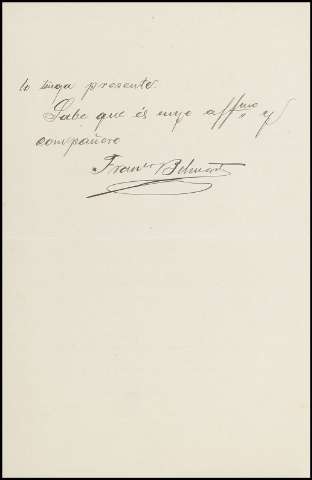 lo tenga presente.
Sabe que és suyo affmo y
compañero
Franco Belmont